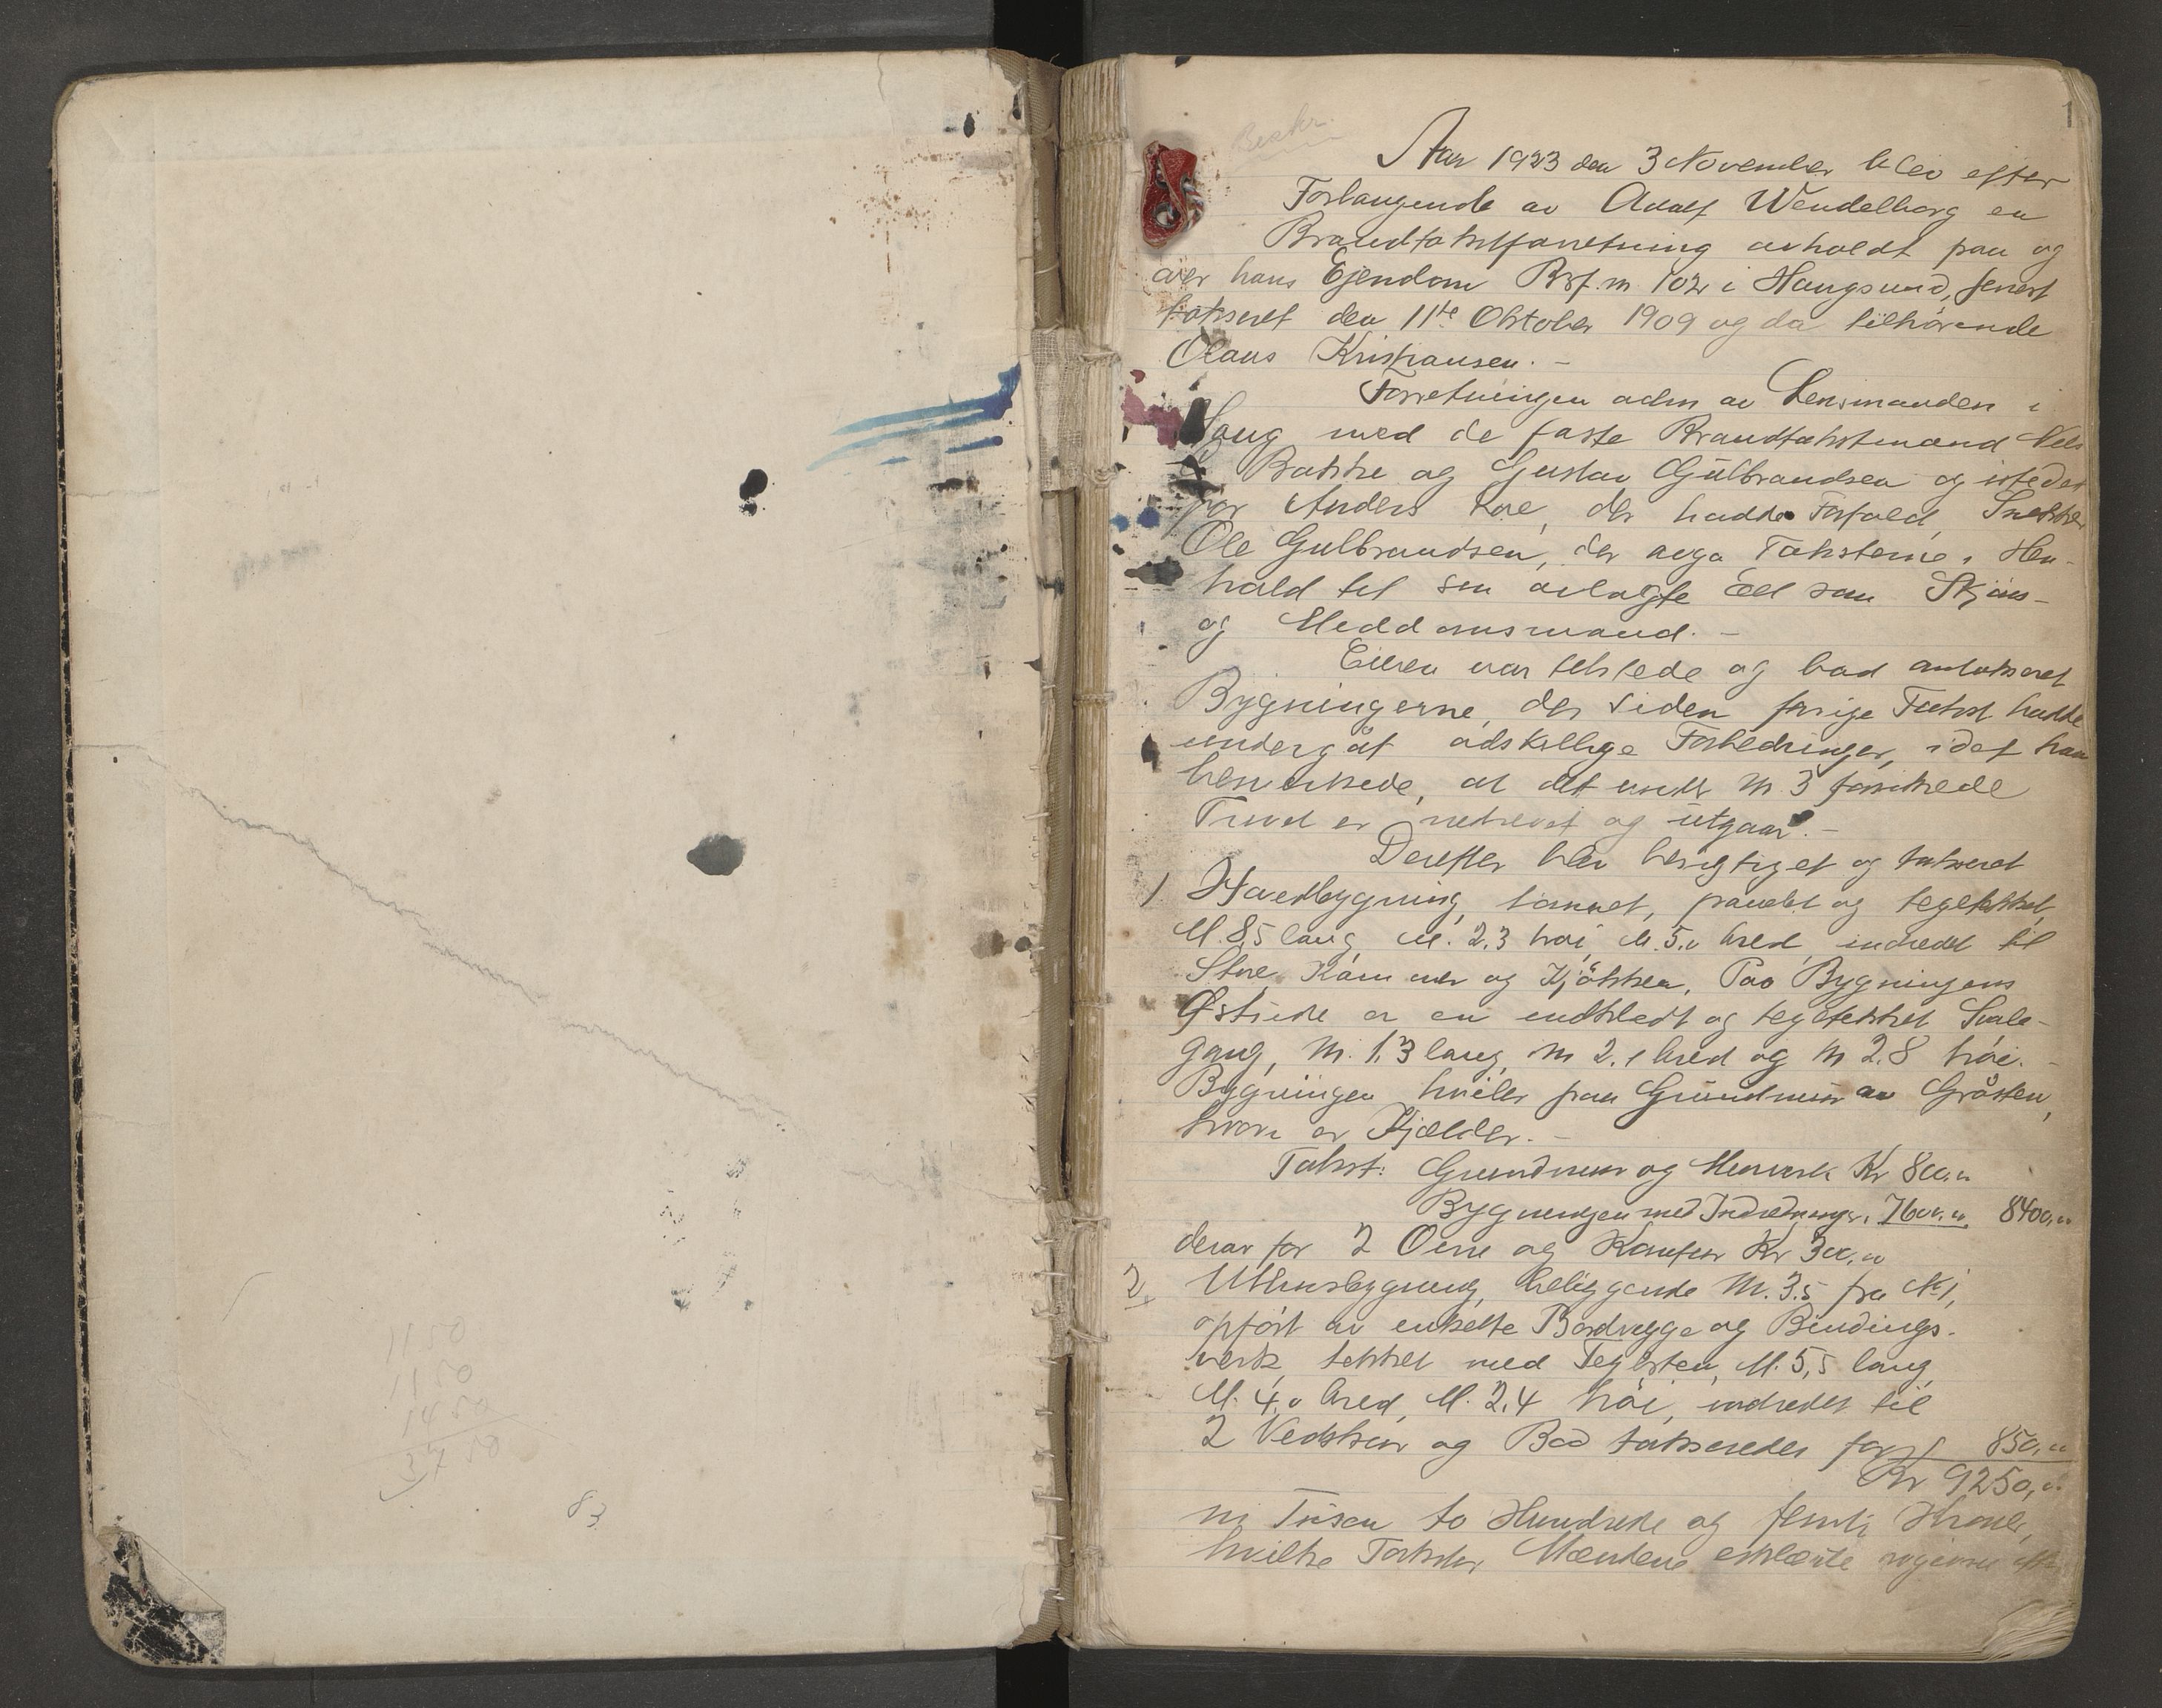 1150
1150
1450
3750
83
1
Beskr.
Aar 1923 den 3 November blev efter
Forlangende av Adolf Wendelborg en
Brandtakstforretning avholdt paa og
over hans Ejendom Brf. nr 102 i Haugsund, senest
takseret den 11te Oktober 1909 og da tilhörende
Olaus Kristiansen. -
Forretningen adm av Lensmanden i
Haug med de faste Brandtakstmænd Nels
Bakke og Gustav Gulbrandsen og istedet
for Anders Roe, der hadde Forfald, Snekker
Ole Gulbrandsen, der avga Taksterne i Hen-
hold til sin avlagte Ed som Skjöns-
og Meddomsmand. -
Eieren var tilstede og bad antakseret
Bygningerne, der siden forrige Takst hadde
undergåt adskillige Forbedringer, idet han
bemerkede, at det under nr 3 forsikrede
er nedrevet og utgaar. -
Derefter blev besigtiget og takseret
1 Hovedbygning, tömret, panelet og tegltekket,
M. 8,5 lang, M. 2,3 höi, M. 5,0 bred, indredet til
Stue, Kammer og Kjökken. Paa Bygningens
Östside er en indkledt og tegltekket Svale-
gang, M. 1,3 lang, M 2,1 bred og M 2,8 höi. -
Bygningen hviler paa Grundmur av Gråsten,
hvori er Kjælder. -
Takst: Grundmur og Murverk Kr 800,00
Bygningen med Indredninger " 7600,00 8400,00
derav for 2 Ovne og Komfur Kr 300,00
2. Uthusbygning, beliggende M. 3,5 fra No 1,
opfört av enkelte Bordvegge og Bindings-
verk, tekket med Teglsten, M. 5,5 lang,
M. 4,0 bred, M. 2,4 höi, indredet til
2 Vedskur og Bod takseredes for 850,00
Kr 9250,00
ni Tusen to Hundrede og femti Kroner,
hvilke Takster Mændene erklærte avgivne efter